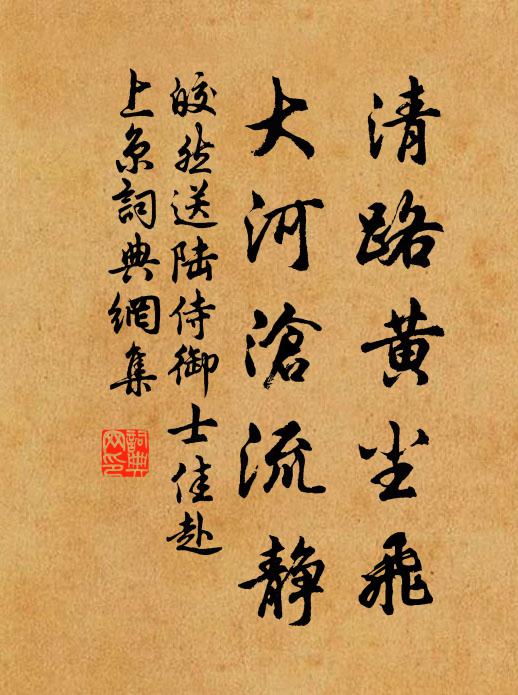 清路黄尘飛
大河滄流静
皎然送陆侍御士佳赴
上京詞典網集
詞典网印